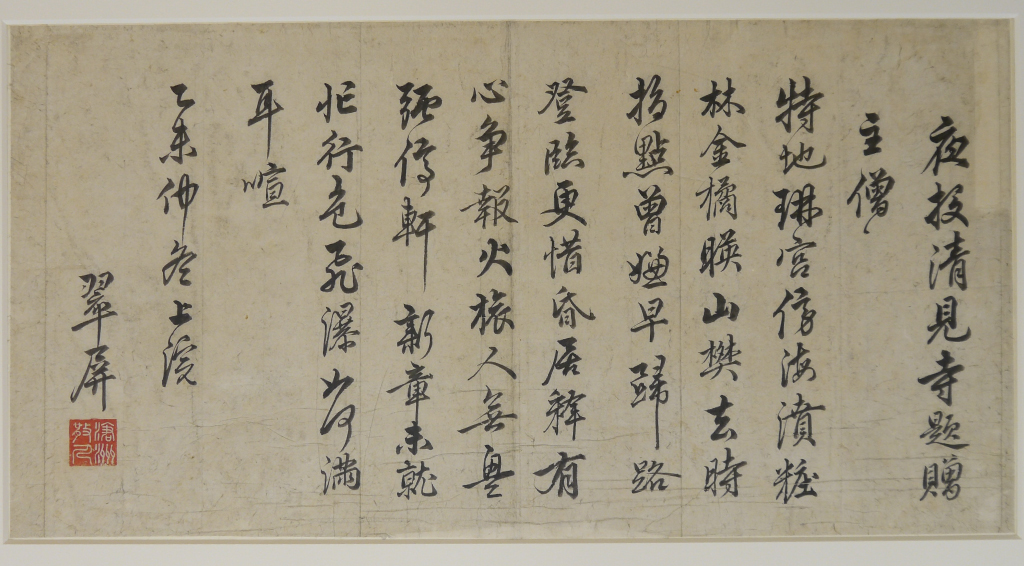 夜投清見寺題贈
主僧
特地琳宮傍海濆粧
林金橘暎山樊去時
指點曾嫌早歸路
登臨更惜昏居釋有
心爭報火旅人無興
強停軒新章未就
忙行色飛瀑如何滿
耳喧
乙未仲冬上浣
翠屏